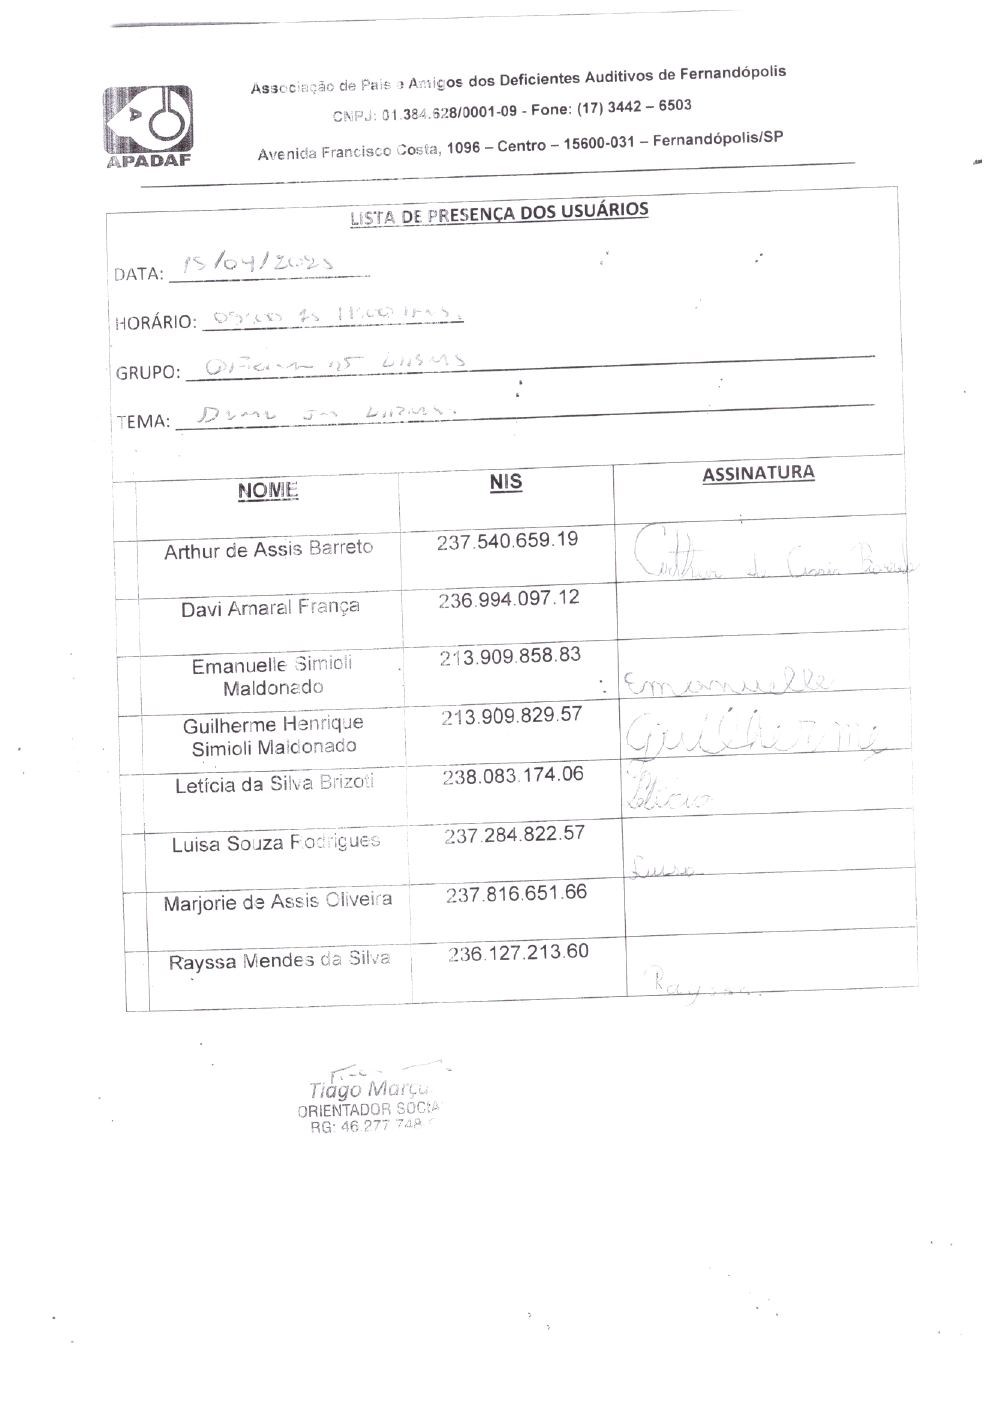 Associação de Pais e Amigos dos Deficientes Auditivos de Fernandópolis
CNPJ: 01.384.628/0001-09 - Fone: (17) 3442 – 6503
Avenida Francisco Costa, 1096 – Centro – 15600-031 – Fernandópolis/SP
APADAF
LISTA DE PRESENÇA DOS USUÁRIOS
DATA: 15/04/2025
HORÁRIO:
GRUPO:
TEMA:
NOME NIS ASSINATURA
Arthur de Assis Barreto 237.540.659.19 Arthur de Assis Barreto
Davi Amaral França 236.994.097.12
Emanuelle Simioli Maldonado 213.909.858.83 Emanuelle
Guilherme Henrique Simioli Maldonado 213.909.829.57 Guilherme
Letícia da Silva Brizoti 238.083.174.06 Letícia
Luisa Souza Rodrigues 237.284.822.57 Luisa
Marjorie de Assis Oliveira 237.816.651.66
Rayssa Mendes da Silva 236.127.213.60 Rayssa
Tiago Marçu
ORIENTADOR SOCIA
RG: 46.277.748